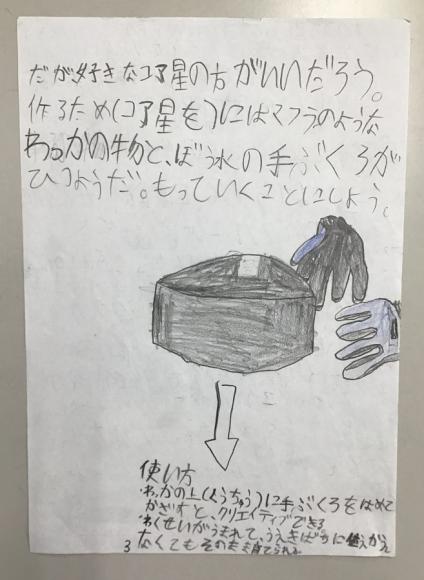 だが好きなコア星の方がいいだろう。
作るため(コア星を)にはマフラのような
わっかの物と、ぼう水の手ぶくろが
ひつようだ。もっていくことにしよう。
使い方
・わっかの上(くうちゅう)に手ぶくろをはめて
かざすと、クリエイティブできる
・わくせいがうまれて、うえきばちに
なくてもそのまま育てられる
3